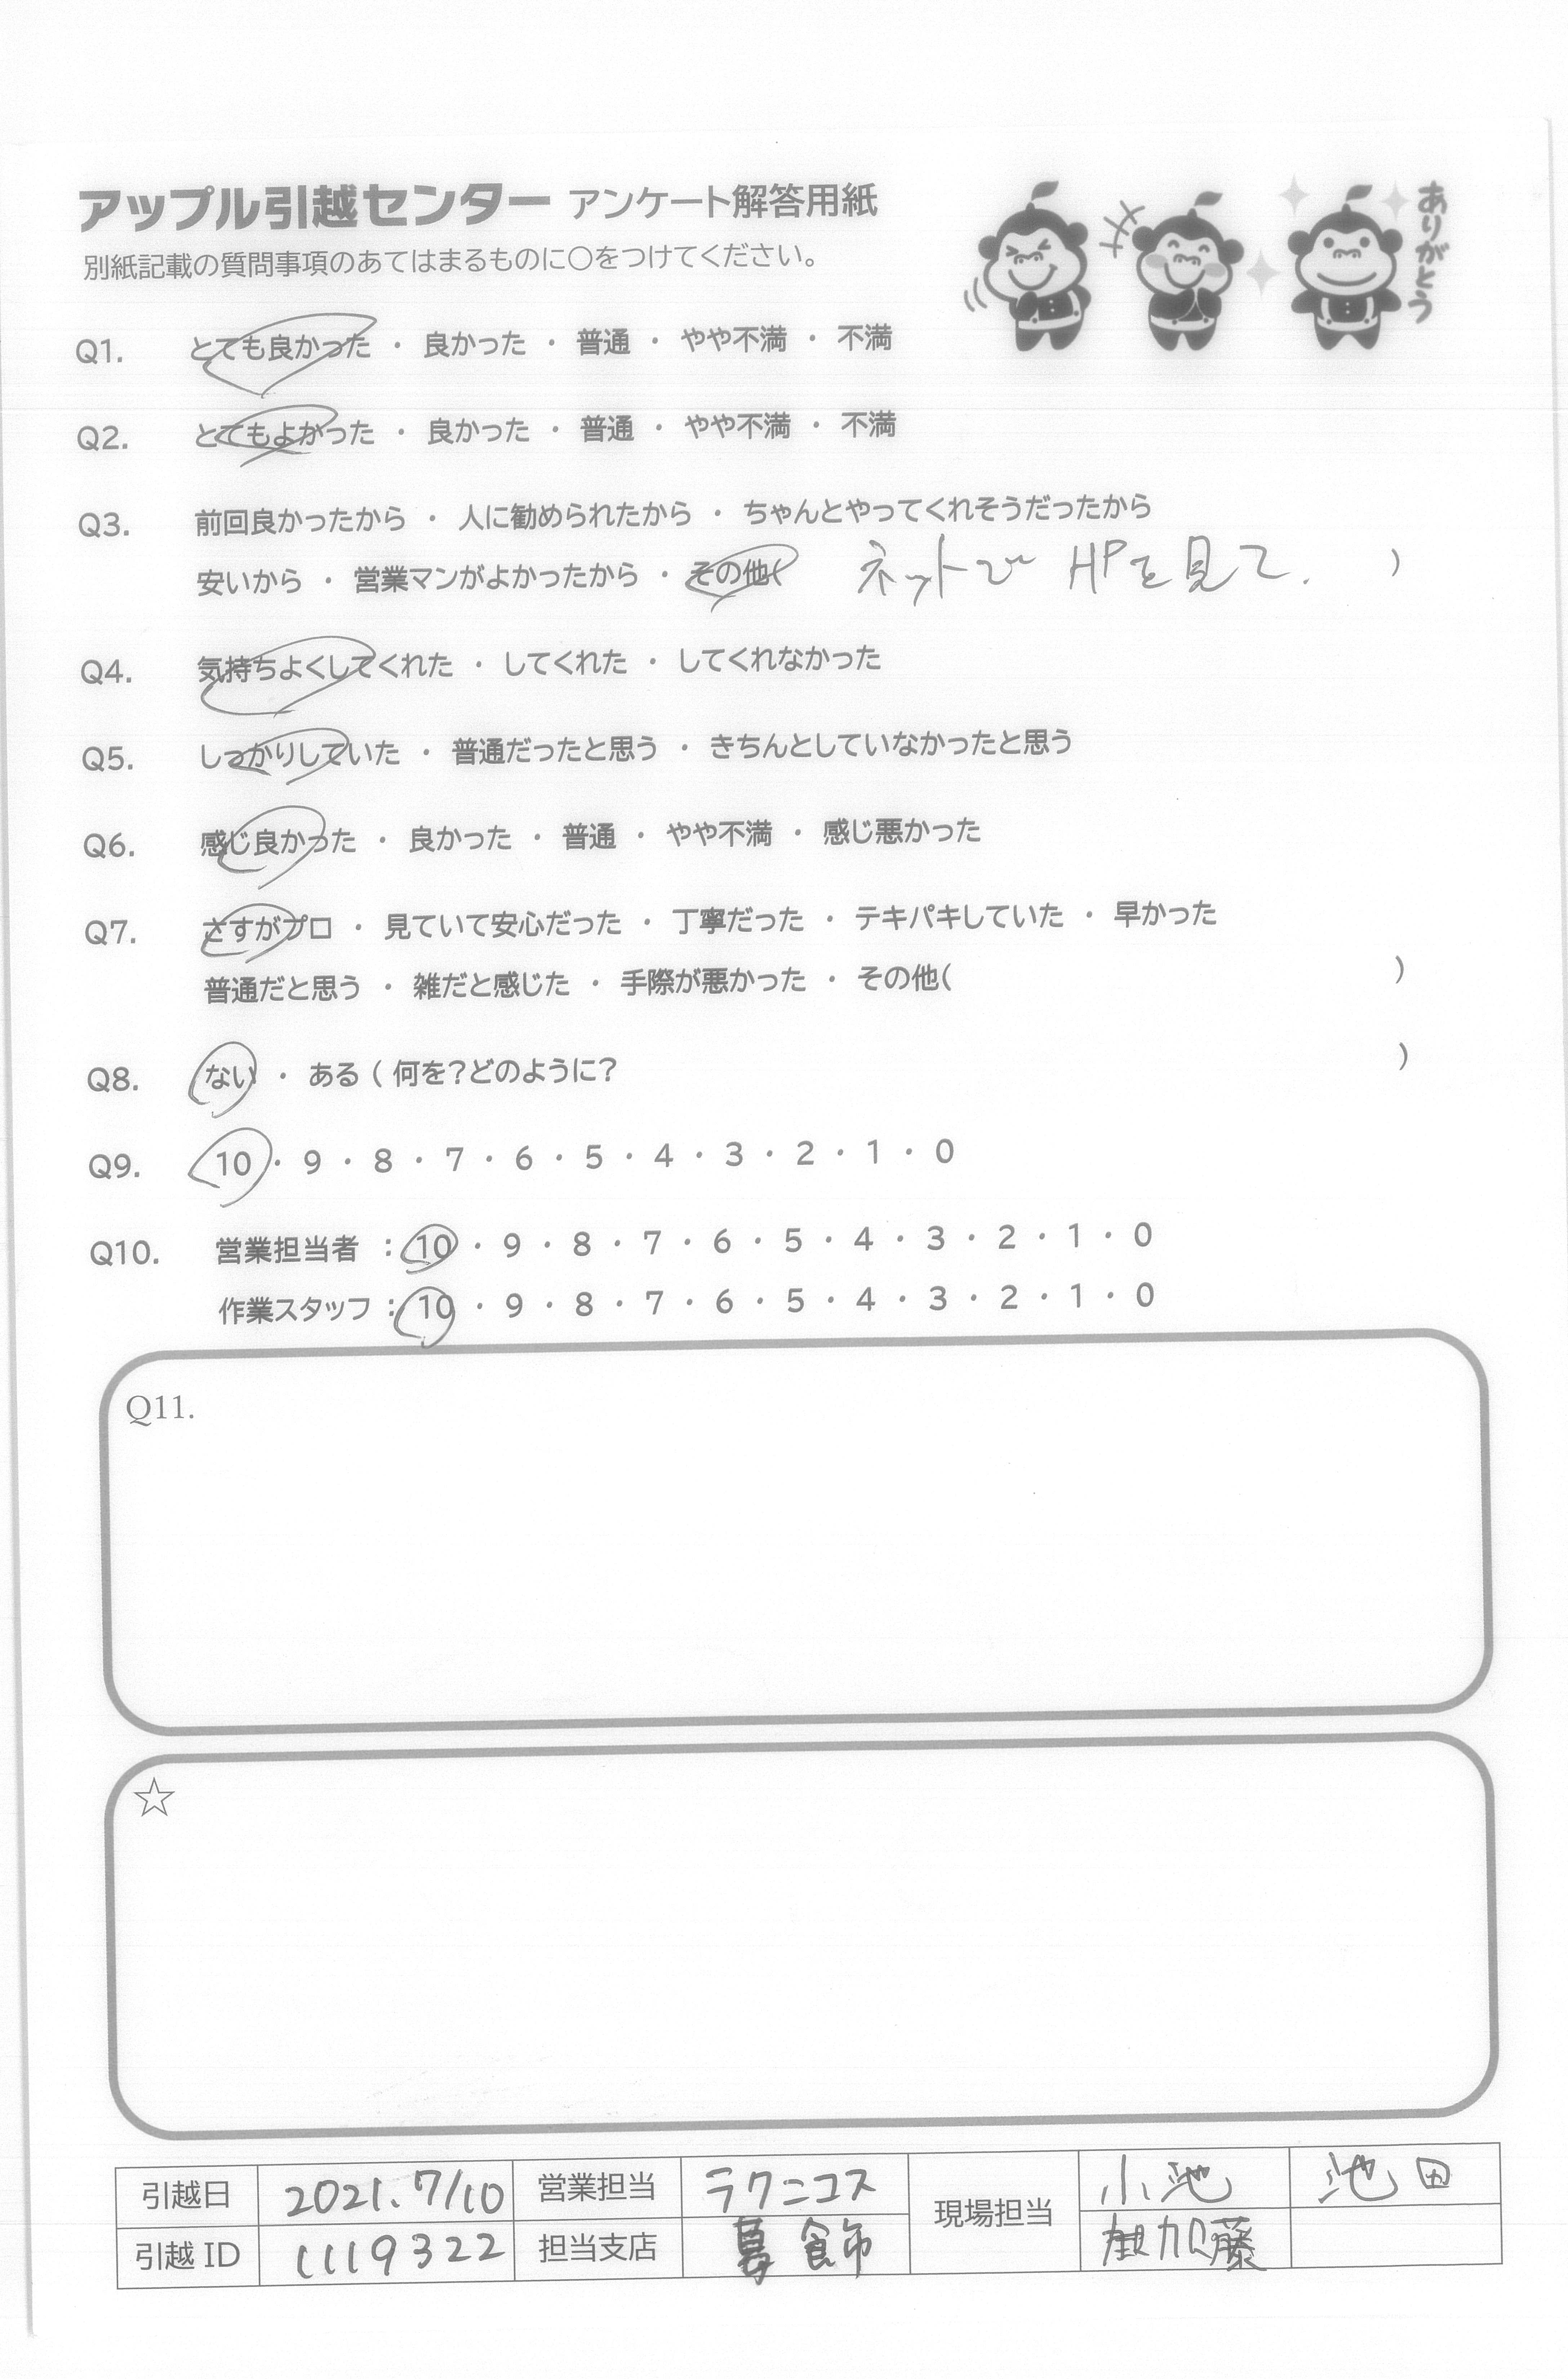 アップル引越センター アンケート解答用紙
別紙記載の質問事項のあてはまるものに○をつけてください。
ありがとう
Q1. とても良かった ・ 良かった ・ 普通 ・ やや不満 ・ 不満
Q2. とてもよかった ・ 良かった ・ 普通 ・ やや不満 ・ 不満
Q3. 前回良かったから ・ 人に勧められたから ・ ちゃんとやってくれそうだったから
安いから ・ 営業マンがよかったから ・ その他( ネットで HPを見て. )
Q4. 気持ちよくしてくれた ・ してくれた ・ してくれなかった
Q5. しっかりしていた ・ 普通だったと思う ・ きちんとしていなかったと思う
Q6. 感じ良かった ・ 良かった ・ 普通 ・ やや不満 ・ 感じ悪かった
Q7. さすがプロ ・ 見ていて安心だった ・ 丁寧だった ・ テキパキしていた ・ 早かった
普通だと思う ・ 雑だと感じた ・ 手際が悪かった ・ その他( )
Q8. ない ・ ある ( 何を?どのように? )
Q9. 10 ・ 9 ・ 8 ・ 7 ・ 6 ・ 5 ・ 4 ・ 3 ・ 2 ・ 1 ・ 0
Q10. 営業担当者 : 10 ・ 9 ・ 8 ・ 7 ・ 6 ・ 5 ・ 4 ・ 3 ・ 2 ・ 1 ・ 0
作業スタッフ : 10 ・ 9 ・ 8 ・ 7 ・ 6 ・ 5 ・ 4 ・ 3 ・ 2 ・ 1 ・ 0
Q11.
☆
引越日 2021.7/10 営業担当 ラクニコス 現場担当 小池 池田
引越 ID 1119322 担当支店 加藤